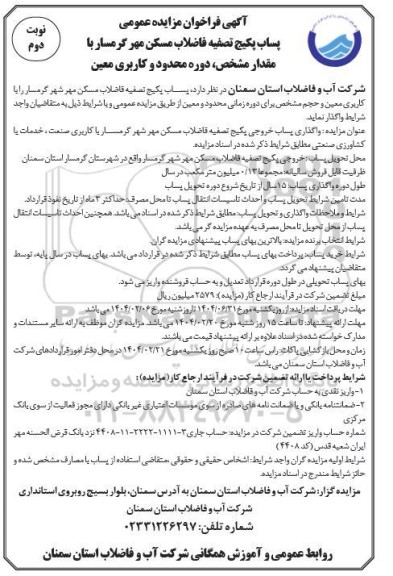 آگهی فراخوان مزایده عمومی
پساب پکیج تصفیه فاضلاب مسکن مهر گرمسار با
مقدار مشخص، دوره محدود و کاربری معین
نوبت
دوم
شرکت آب و فاضلاب استان سمنان در نظر دارد، پساب پکیج تصفیه فاضلاب مسکن مهر شهر گرمسار را با
کاربری معین و حجم مشخص برای دوره زمانی محدود و معین از طریق مزایده عمومی و با شرایط ذیل به متقاضیان واجد
شرایط واگذار نماید.
عنوان مزایده: واگذاری پساب خروجی پکیج تصفیه فاضلاب مسکن مهر شهر گرمسار با کاربری صنعت، خدمات یا
کشاورزی صنعتی مطابق شرایط ذکر شده در اسناد مزایده.
محل تحویل پساب: خروجی پکیج تصفیه فاضلاب مسکن مهر شهر گرمسار واقع در شهرستان گرمسار استان سمنان
ظرفیت قابل فروش سالیانه: مجموعا ۰/۱۳ میلیون متر مکعب در سال
طول دوره واگذاری پساب: ۱۵ سال از تاریخ شروع دوره تحویل پساب
مدت تامین شرایط تحویل پساب و احداث تاسیسات انتقال پساب تا محل مصرف: حداکثر ۳ ماه از تاریخ نفوذ قرارداد.
شرایط و ملاحظات واگذاری و تحویل پساب: مطابق شرایط ذکر شده در اسناد می باشد. همچنین احداث تاسیسات انتقال
پساب از محل تحویل تا محل مصرف به عهده مزایده گر می باشد.
شرایط انتخاب برنده مزایده: بالاترین بهای پساب پیشنهادی مزایده گران.
شرایط خرید پساب: پرداخت بهای پساب مطابق شرایط ذکر شده در قرارداد می باشد. بهای پساب در سال پایه، توسط
متقاضیان پیشنهاد می گردد.
بهای پساب تحویلی در طول دوره قرارداد تعدیل و به حساب فروشنده واریز می شود.
مبلغ تضمین شرکت در فرآیند ارجاع کار (مزایده): ۲۵۷۹ میلیون ریال
مهلت دریافت اسناد مزایده: از روز یکشنبه مورخ تا روز شنبه مورخ ۱۴۰۴/۰۲/۰۶ می باشد.
مهلت ارائه پیشنهاد: تا ساعت ۱۵ روز شنبه مورخ ۱۴۰۴/۰۲/۲۰ می باشد. مزایده گران موظف به ارائه سایر مستندات و
مدارک خواسته شده در اسناد علاوه بر ارائه پیشنهاد قیمت می باشند.
زمان و محل بازگشایی پاکات: راس ساعت ۱۰ صبح روز یکشنبه مورخ ۱۴۰۴/۰۲/۲۱ در محل دفتر امور قراردادهای شرکت
آب و فاضلاب استان سمنان می باشد.
شرایط پرداخت یا ارائه تضمین شرکت در فرآیند ارجاع کار (مزایده)
۱- واریز نقدی به حساب شرکت آب و فاضلاب استان سمنان
۲- ضمانتنامه بانکی و یا ضمانت نامه های صادره از سوی موسسات اعتباری غیر بانکی دارای مجوز فعالیت از سوی بانک
مرکزی
شماره حساب واریز تضمین شرکت در مزایده: حساب جاری ۳-۱۱۱۱-۲۲۲۲-۱۱-۴۴۰۸ نزد بانک قرض الحسنه مهر
ایران شعبه قدس (کد ۴۴۰۸)
شرایط اولیه مزایده گران واجد شرایط: اشخاص حقیقی و حقوقی متقاضی استفاده از پساب با مصارف مشخص شده و
حائز شرایط مندرج در اسناد مزایده.
مزایده گزار: شرکت آب و فاضلاب استان سمنان به آدرس سمنان، بلوار بسیج روبروی استانداری
شرکت آب و فاضلاب استان سمنان
شماره تلفن: ۰۲۳۳۱۲۲۶۲۹۷
روابط عمومی و آموزش همگانی شرکت آب و فاضلاب استان سمنان